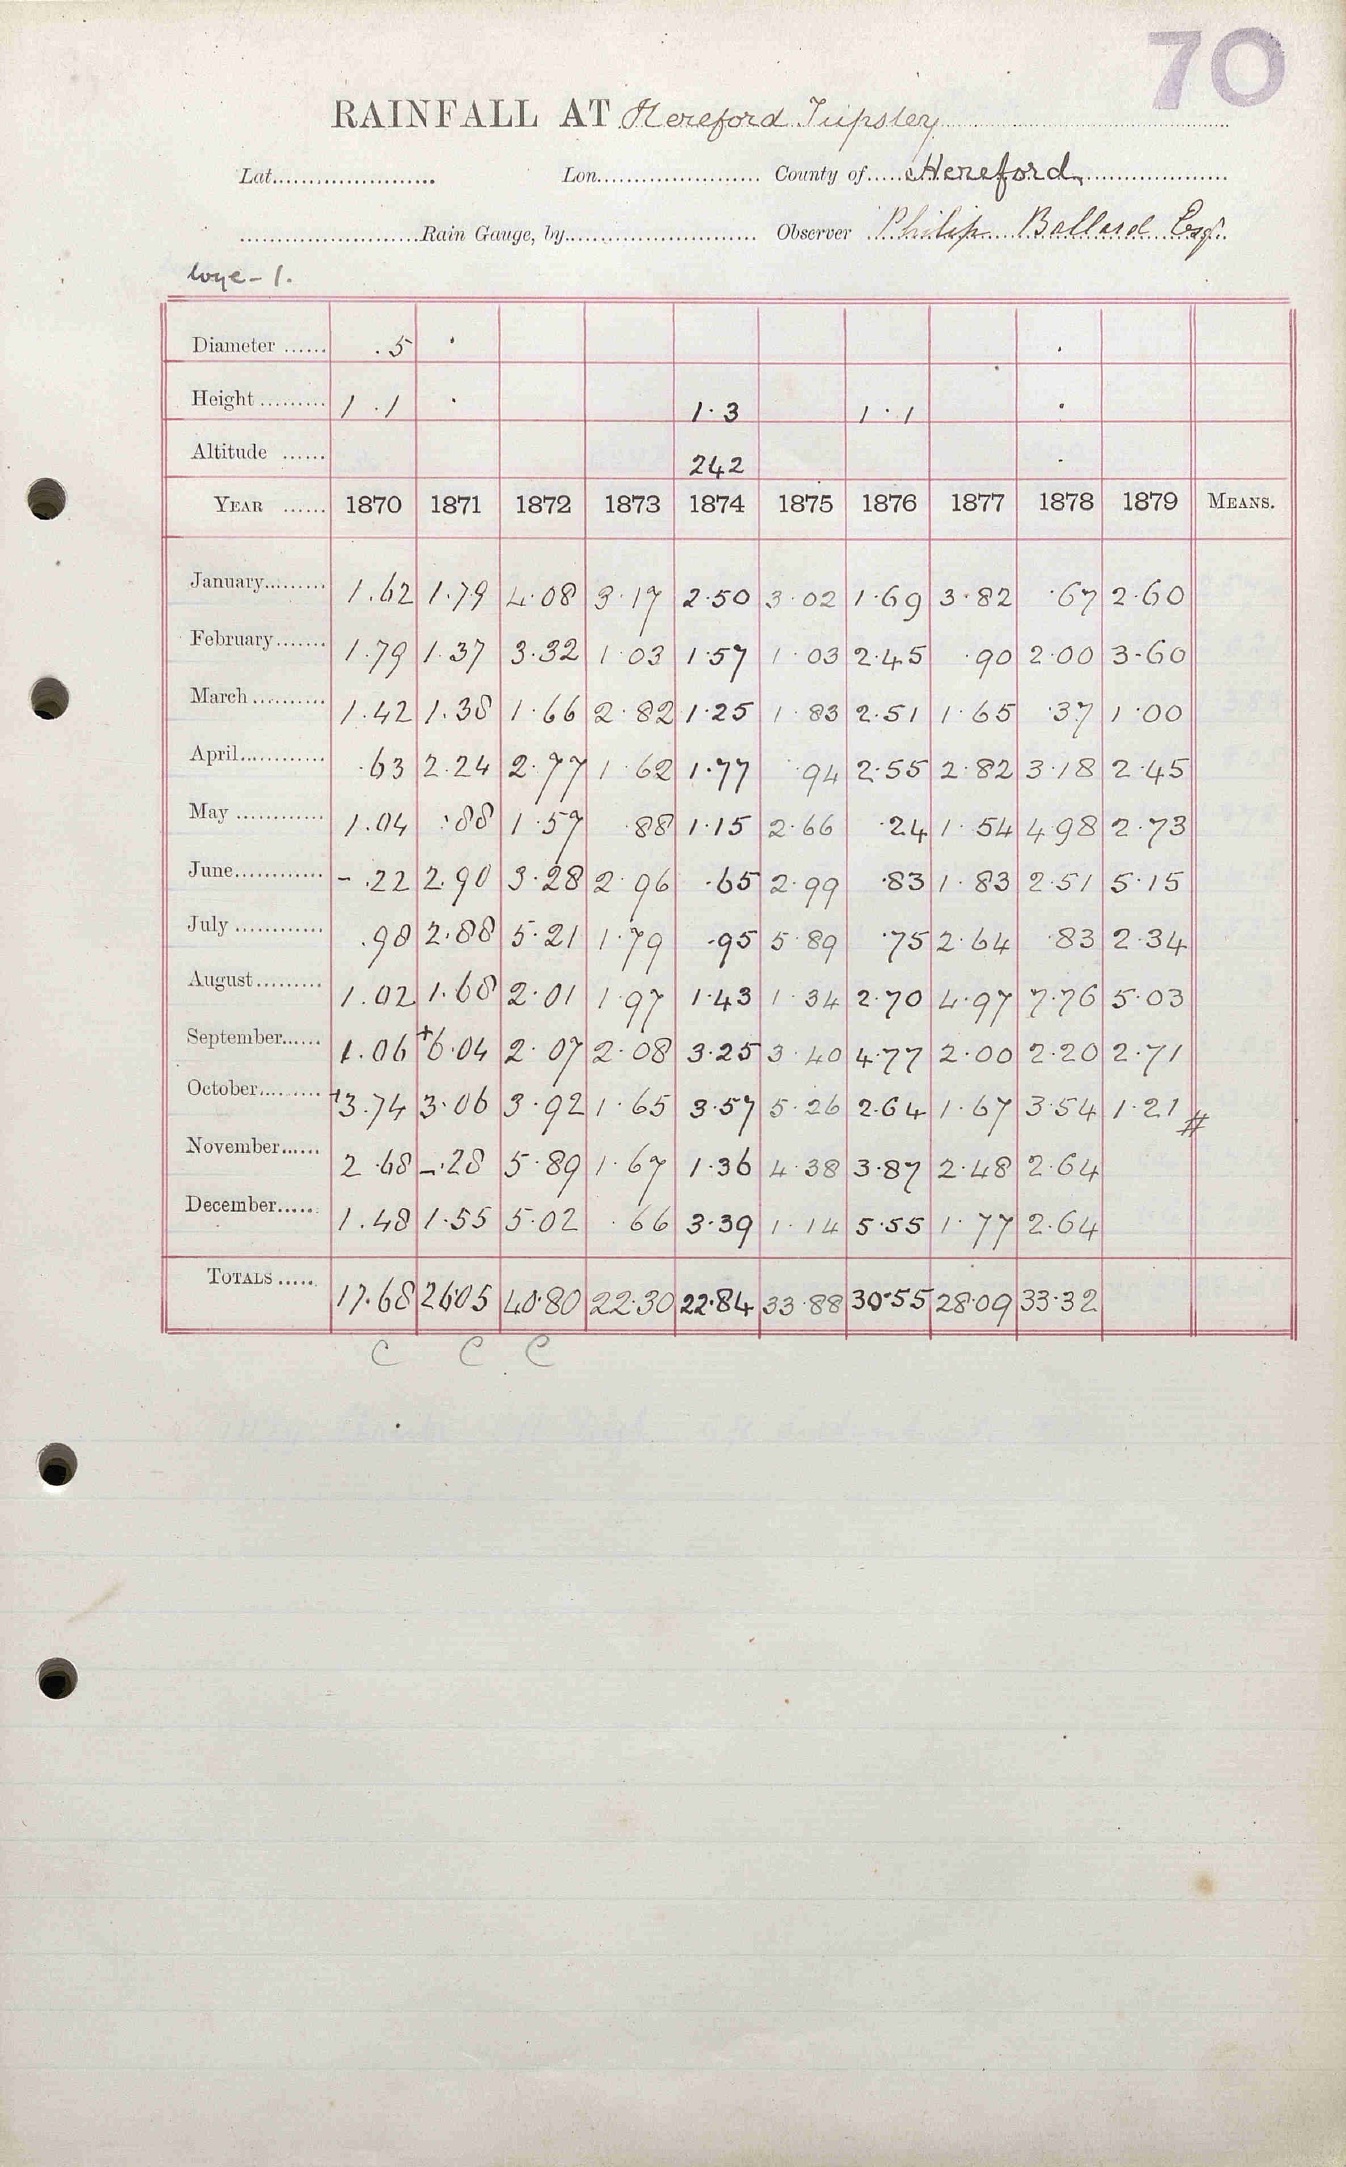 70
RAINFALL AT Hereford Tupsley
Lat...................... Lon...................... County of..... Hereford
........................Rain Gauge, by.......................... Observer Philip Ballard Esq.
Wye - 1.
Diameter ...... .5 . .
Height ......... 1 .1 . 1.3 1.1 .
Altitude ...... 242 .
YEAR ...... 1870 1871 1872 1873 1874 1875 1876 1877 1878 1879 MEANS.
January......... 1.62 1.79 4.08 3.17 2.50 3.02 1.69 3.82 .67 2.60
February....... 1.79 1.37 3.32 1.03 1.57 1.03 2.45 .90 2.00 3.60
March........... 1.42 1.38 1.66 2.82 1.25 1.83 2.51 1.65 .37 1.00
April............ .63 2.24 2.77 1.62 1.77 .94 2.55 2.82 3.18 2.45
May ............ 1.04 .88 1.57 .88 1.15 2.66 .24 1.54 4.98 2.73
June............ - .22 2.90 3.28 2.96 .65 2.99 .83 1.83 2.51 5.15
July ............ .98 2.88 5.21 1.79 .95 5.89 .75 2.64 .83 2.34
August......... 1.02 1.68 2.01 1.97 1.43 1.34 2.70 4.97 7.76 5.03
September...... 1.06 +6.04 2.07 2.08 3.25 3.40 4.77 2.00 2.20 2.71
October......... +3.74 3.06 3.92 1.65 3.57 5.26 2.64 1.67 3.54 1.21 #
November...... 2.68 -.28 5.89 1.67 1.36 4.38 3.87 2.48 2.64
December...... 1.48 1.55 5.02 .66 3.39 1.14 5.55 1.77 2.64
TOTALS ...... 17.68 26.05 40.80 22.30 22.84 33.88 30.55 28.09 33.32
C C C